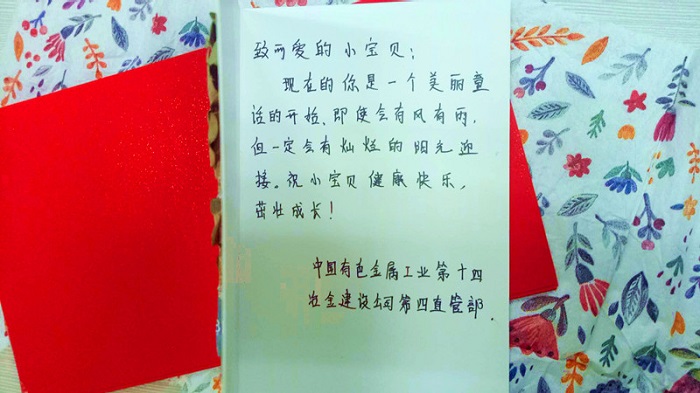 致可爱的小宝贝：
现在的你是一个美丽童
话的开始、即使会有风有雨，
但一定会有灿烂的阳光迎
接。祝小宝贝健康快乐，
茁壮成长！
中国有色金属工业第十四
冶金建设公司第四直管部.